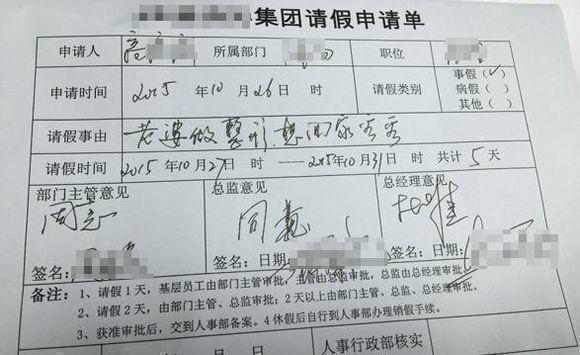 集团请假申请单
申请人 所属部门 职位
申请时间 2015年10月26日 时 请假类别 事假(✓)
病假( )
其他( )
请假事由 老婆做整形,想回家看看
请假时间 2015年10月27日 时 ----2015年10月31日 时 共计5天
部门主管意见 总监意见 总经理意见
同意 同意
签名: 签名: 日期: 签名: 日期:
备注: 1、请假1天,基层员工由部门主管审批,主管由总监审批,总监由总经理审批
2、请假2天,由部门主管、总监审批;2天以上由部门主管、总监、总经理审批。
3、获准审批后,交到人事部备案。4休假后自行到人事部办理销假手续。
人事行政部核实